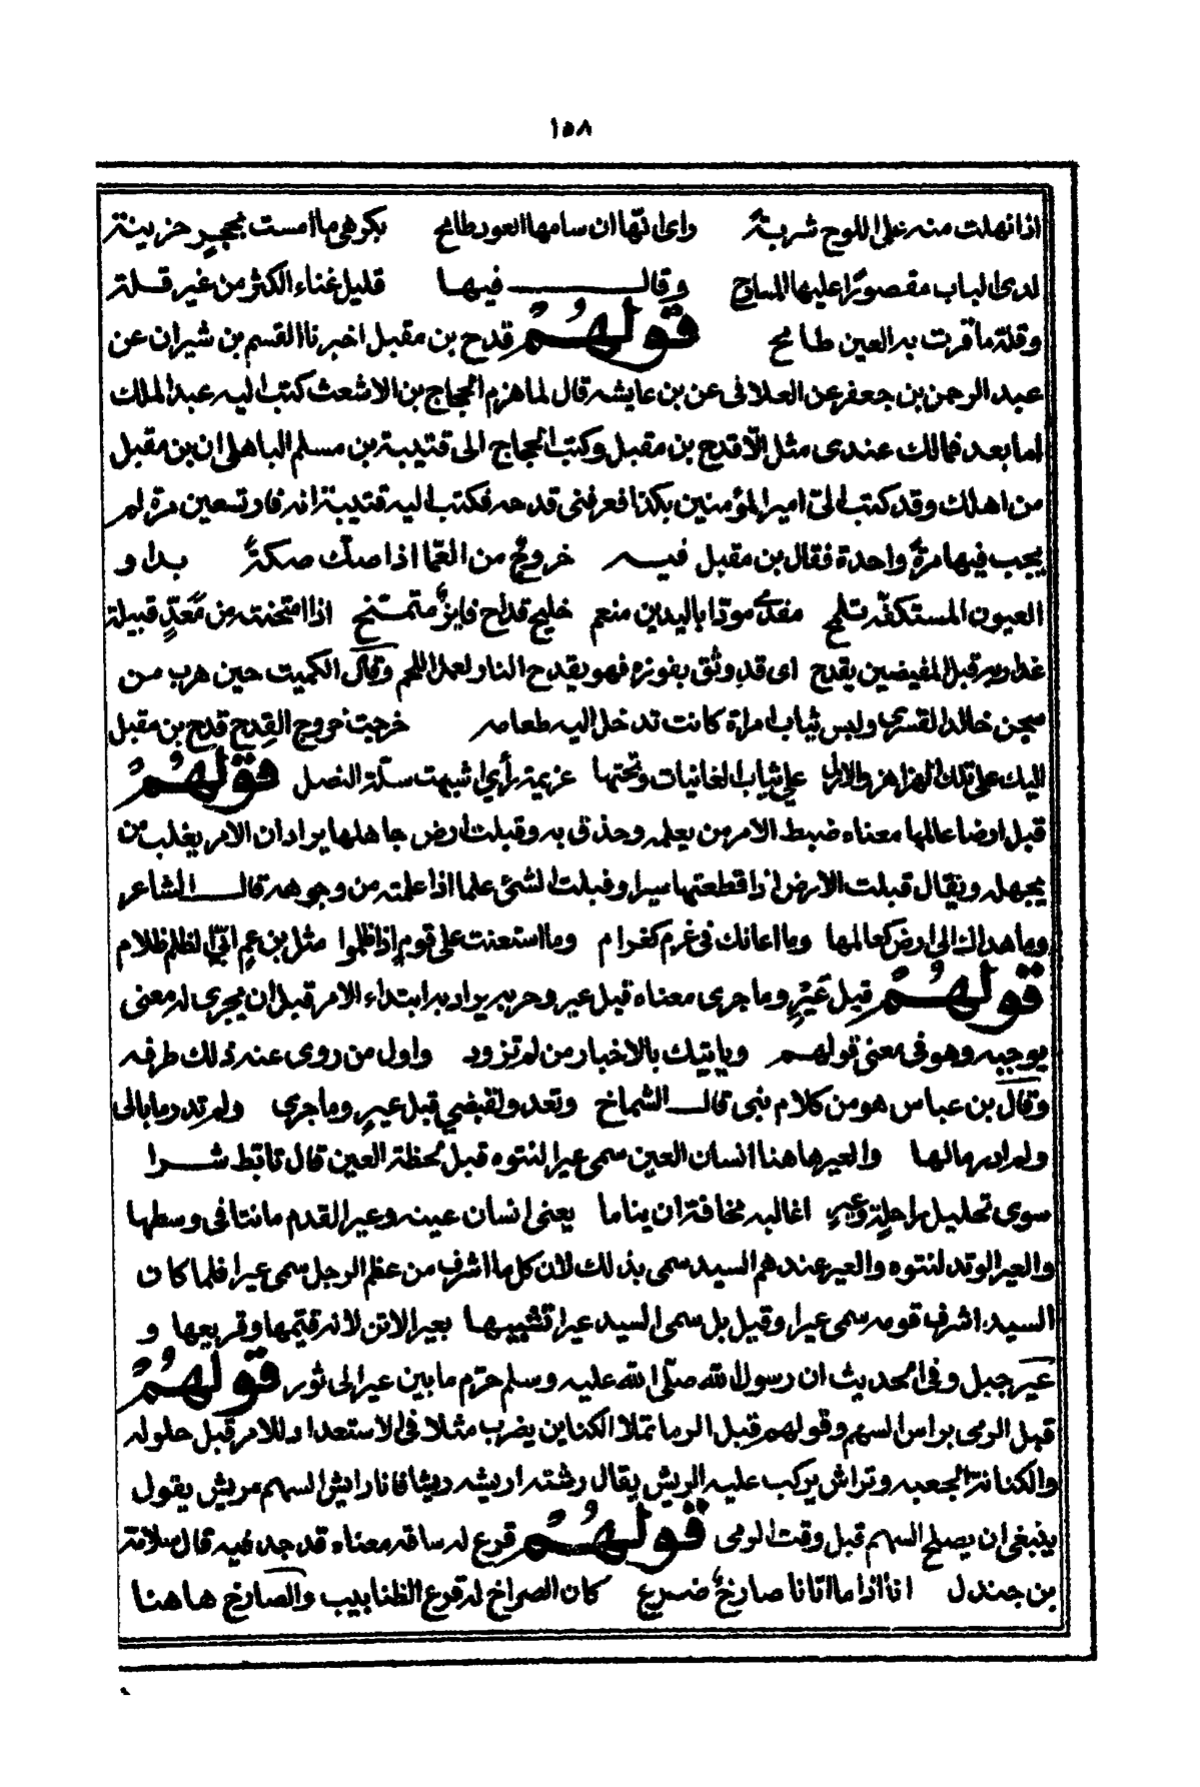 ١٥٨
اذا نهلت منه على اللوح شربة راى انها ان سامها العود طامح بكر هى ما امست بمجير حزينة
لدى الباب مقصورا عليها المسارح وقال فيها قليل غناء الكثر من غير قلة
وقلة ما قرت به العين طامح قولهم قدح بن مقبل اخبرنا القسم بن شيران عن
عبد الرحمن بن جعفر عن العلافى عن بن عايشه قال لما هزم الحجاج بن الاشعث كتب اليه عبد الملك
اما بعد فمالك عندى مثل الّا قدح بن مقبل وكتب الحجاج الى قتيبة بن مسلم الباهلى ان بن مقبل
من اهلك وقد كتب الىّ امير المؤمنين بكذا فعرفنى قدحه فكتب اليه قتيبة انه فاز تسعين مرة لم
يجب فيها مرة واحدة فقال بن مقبل فيه خروج من الغمّا اذا صك صكة بدا و
العيون المستكفّة تلمح مفدى مودا باليدين منعم خليع قداح فايز متمنح اذا امتحنته من مَعَدٍّ قبيلة
غدا ربه قبل المفيضين يقدح اى قد وثق بفوزه فهو يقدح النار لعمل اللحم وقال الكميت حين هرب من
سجن خالد القسرى ولبس ثياب امراة كانت تدخل اليه طعامه خرجت خروج القدح قدح بن مقبل
اليك على تلك الهزاهز والازل على ثياب الغانيات وتحتها عزيمة رأى اشبهت سلّة النصل قولهم
قبل ارضا عالمها معناه ضبط الامر من يعلمه وحذق به وقبلت ارض جاهلها يراد ان الامر يغلب من
يجهله ويقال قبلت الارض اذا قطعتها سيرا وقبلت الشئ علما اذا علمته من وجوهه قال الشاعر
وما هداك الى ارض كعالمها وما اعانك فى غرم كغرام وما استعنت على قوم اذا ظلموا مثل بن عم ابىّ الظلم ظلام
قولهم قبل عَيْرٍ وما جرى معناه قبل عير وجريه يراد به ابتداء الامر قبل ان يجرى له معنى
يوجبه وهو فى معنى قولهم وياتيك بالاخبار من لم تزود واول من روى عنه ذلك طرفه
وقال بن عباس هو من كلام نبى قال الشماخ وتعدو القبضى قبل عير وما جرى ولم تدر ما بالى
ولم ادر مالها والعير هاهنا انسان العين سمى عيرا لنتوه قبل لحظة العين قال تابط شرا
سوى تحليل راحلة وعير اغالبه مخافة ان يناما يعنى انسان عينه وعير القدم ما نتا فى وسطها
والعير الوتد لنتوه والعير عندهم السيد سمى بذلك لان كل ما اشرف من عظم الرجل سمى عيرا فلما كان
السيد اشرف قومه سمى عيرا وقيل بل سمى السيد عيرا تشبيها بعير الاتن لانه قيمها وقريعها و
عَير جبل وفى الحديث ان رسول الله صلّى الله عليه وسلم حرّم ما بين عير الى ثور قولهم
قبل الرمى براس السهم وقولهم قبل الرما تملا الكناين يضرب مثلا فى الاستعداد للامر قبل حلوله
والكنانة الجعبه وتراش يركب عليه الريش يقال رشته اريشه ريشا فانا رايش السهم مريش يقول
ينبغى ان يصلح السهم قبل وقت الرمى قولهم قرع له ساقه معناه قد جد فيه قال سلامة
بن جندل انا اذا ما اتانا صارخ ضرع كان الصراخ له قرع الظنابيب والصارخ هاهنا